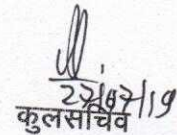 22/07/19
कुलसचिव